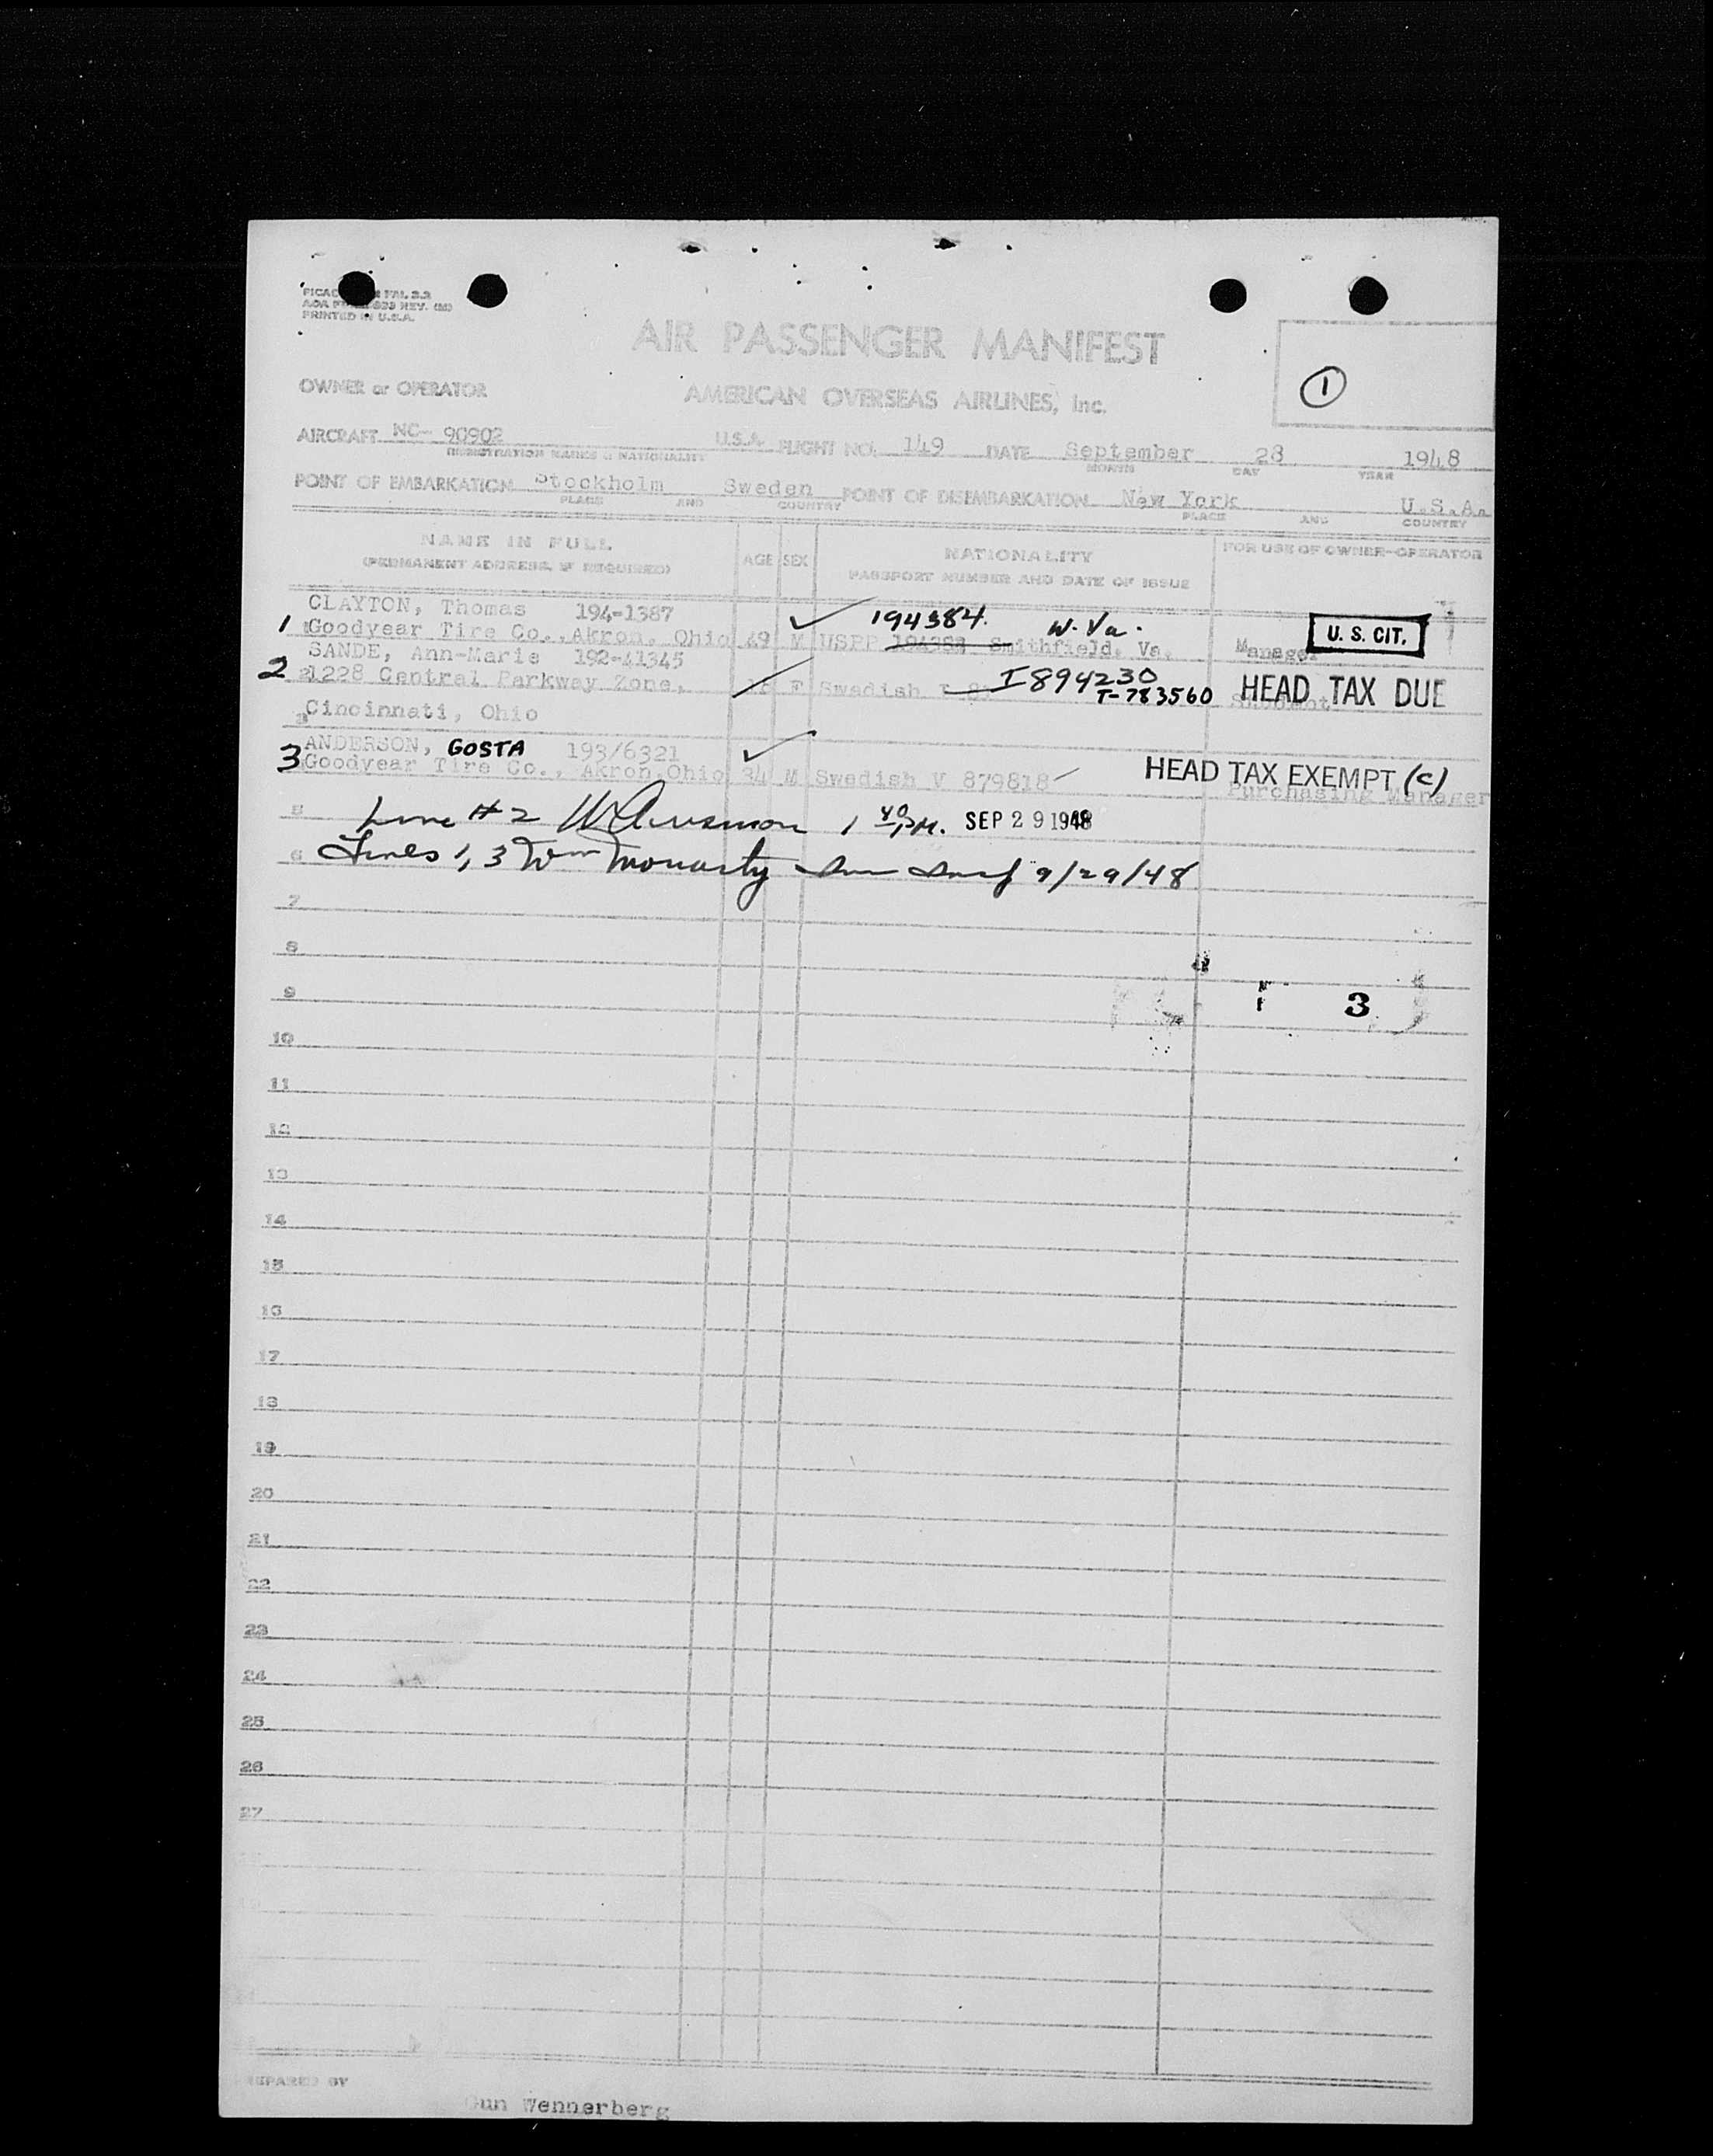 PRINTED IN U.S.A.
AIR PASSENGER MANIFEST
1
OWNER or OPERATOR AMERICAN OVERSEAS AIRLINES, Inc.
AIRCRAFT NC- 90902 U.S.A. FLIGHT NO. 149 DATE September 28 1948
REGISTRATION MARKS & NATIONALITY MONTH DAY YEAR
POINT OF EMBARKATION Stockholm Sweden POINT OF DISEMBARKATION New York U.S.A.
PLACE AND COUNTRY PLACE AND COUNTRY
NAME IN FULL AGE SEX NATIONALITY FOR USE OF OWNER-OPERATOR
(PERMANENT ADDRESS, IF REQUIRED) PASSPORT NUMBER AND DATE OF ISSUE
CLAYTON, Thomas 194-1387 194384 W. Va.
1 Goodyear Tire Co., Akron, Ohio 49 M USPP Smithfield, Va. Manager U. S. CIT.
SANDE, Ann-Marie 192-41345 I894230
2 1228 Central Parkway Zone, F Swedish T-783560 HEAD TAX DUE
Cincinnati, Ohio
ANDERSON, GOSTA 193/6321
3 Goodyear Tire Co., Akron, Ohio 34 M Swedish V 879818 HEAD TAX EXEMPT (c)
Purchasing Manager
5 Line #2 1 40 PM. SEP 29 1948
6 Lines 1, 3 Wm Moriarty 9/29/48
7
8
9 3
10
11
12
13
14
15
16
17
18
19
20
21
22
23
24
25
26
27
PREPARED BY
Gun Wennerberg